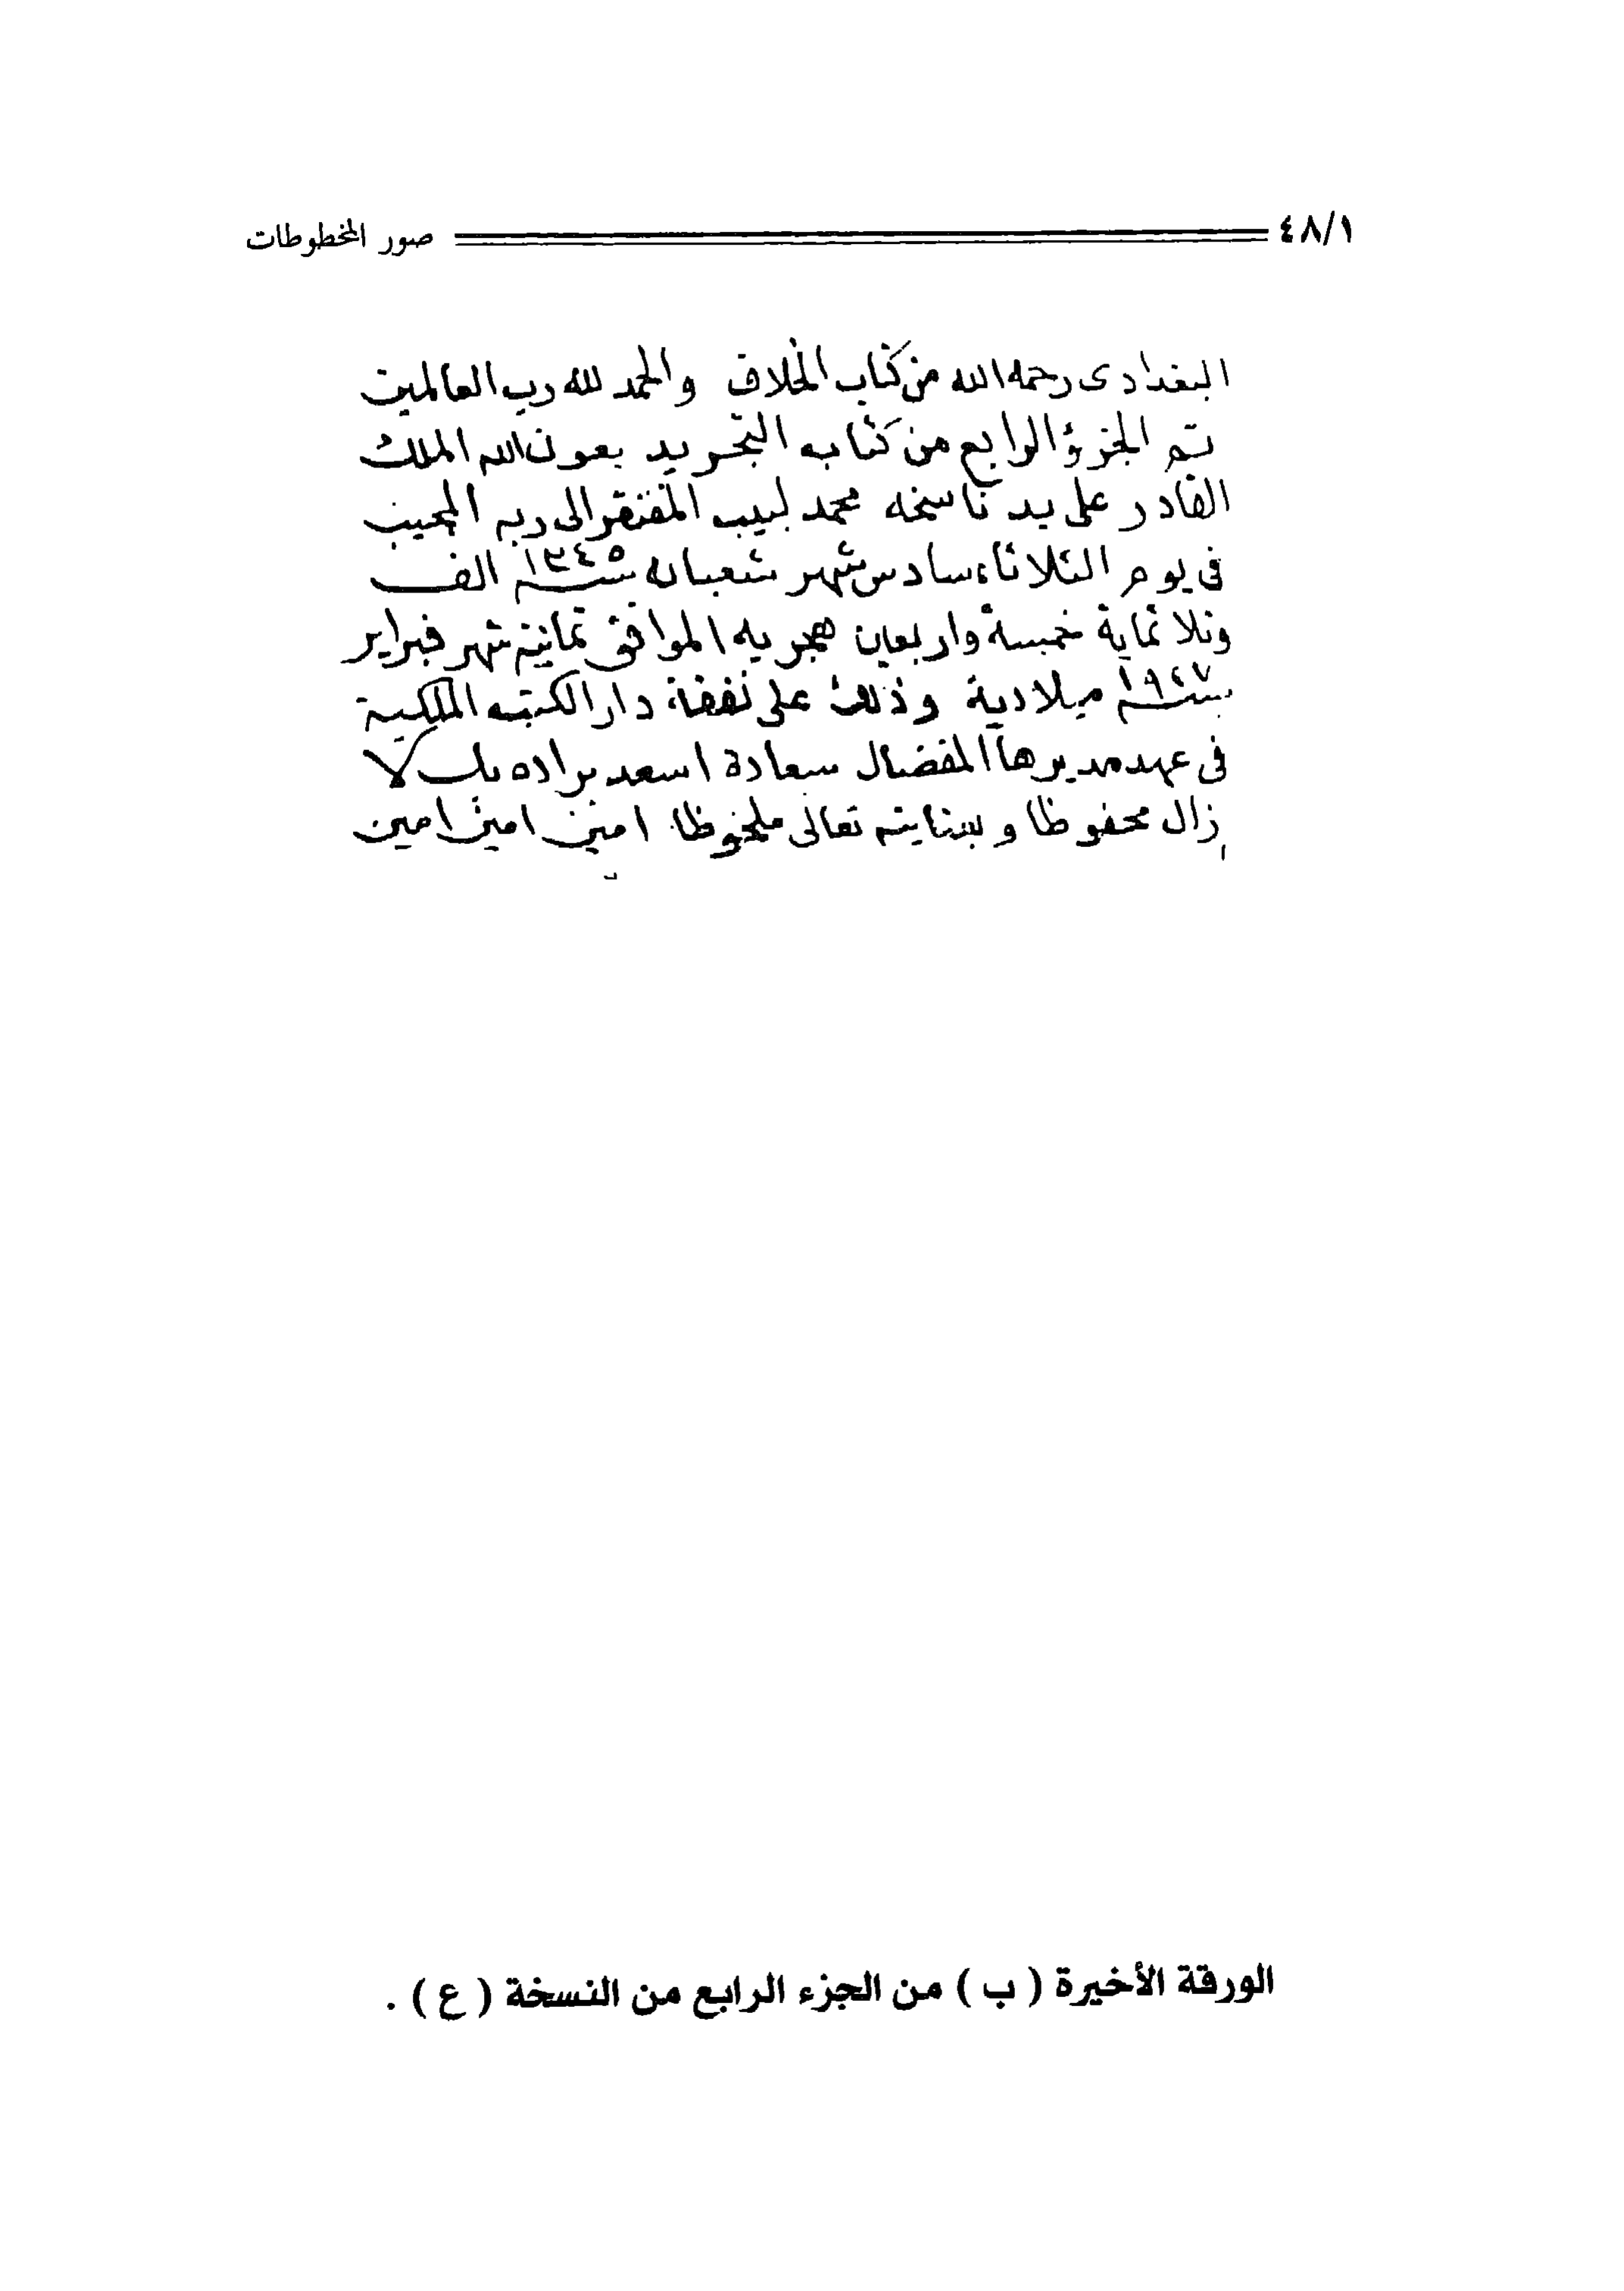 ٤٨/١ صور المخطوطات
البغدادى رحمه الله من كتاب الخلاف والحمد لله رب العالمين
تم الجزؤ الرابع من كتاب التجريد بعون الله الملك
القادر على يد ناسخه محمد لبيب المفتقر الى ربه المجيب
فى يوم الثلاثاء سادس شهر شعبان سنة ١٣٤٥ الف
وثلاثماية خمسة واربعين هجريه الموافق ثمانية شهر فبراير
سنة ١٩٢٧ ميلادية وذلك على نفقة دار الكتب الملكية
فى عهد مديرها المفضال سعادة اسعد براده بك لا
زال محفوظا و تعالى ملحوظا امين امين امين
الورقة الأخيرة ( ب ) من الجزء الرابع من النسخة ( ع ) .